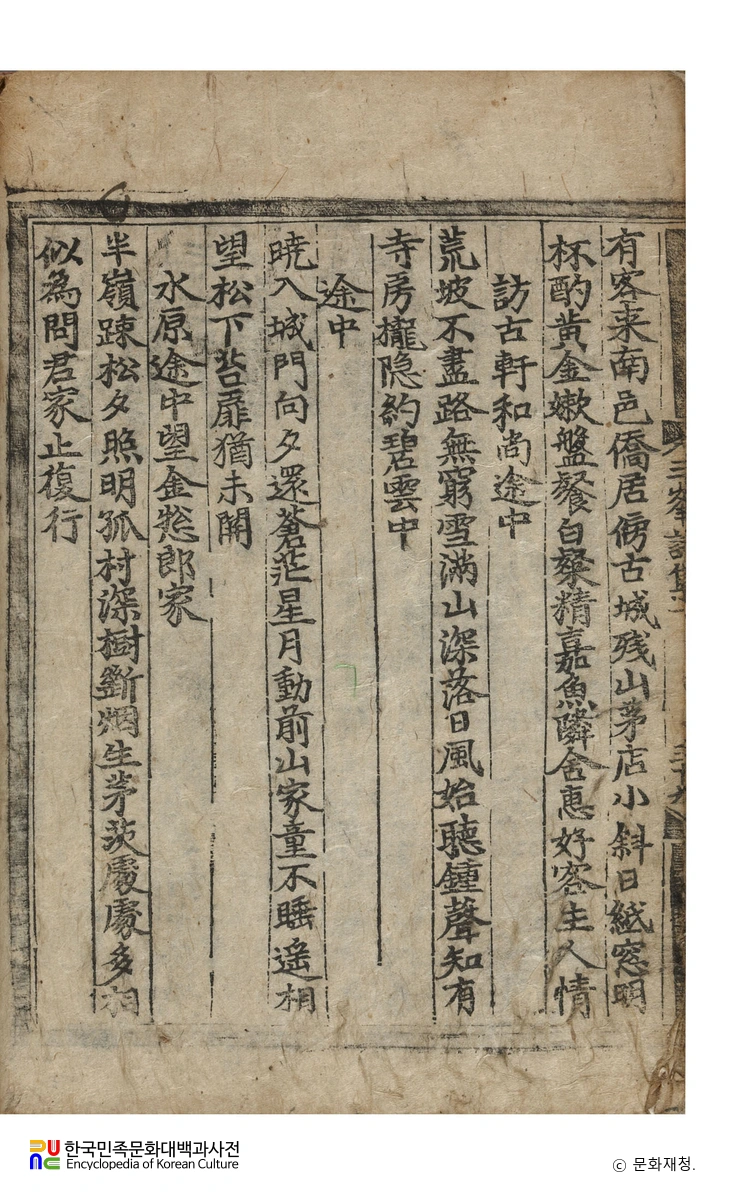 有客来南邑僑居傍古城残山茅店小斜日紙窓明
杯酌黄金嫩盤飱白粲精嘉魚隣舍惠好客主人情
訪古軒和尚途中
荒坡不盡路無窮雪滿山深落日風始聽鍾聲知有
寺房櫳隐約碧雲中
途中
曉入城門向夕還蒼茫星月動前山家童不睡遥相
望松下苔扉猶未關
水原途中望金郎家
半嶺踈松夕照明孤村深樹斷烟生茅茨處處多相
似為問君家止復行
三峯詩集
한국민족문화대백과사전
Encyclopedia of Korean Culture
ⓒ 문화재청.